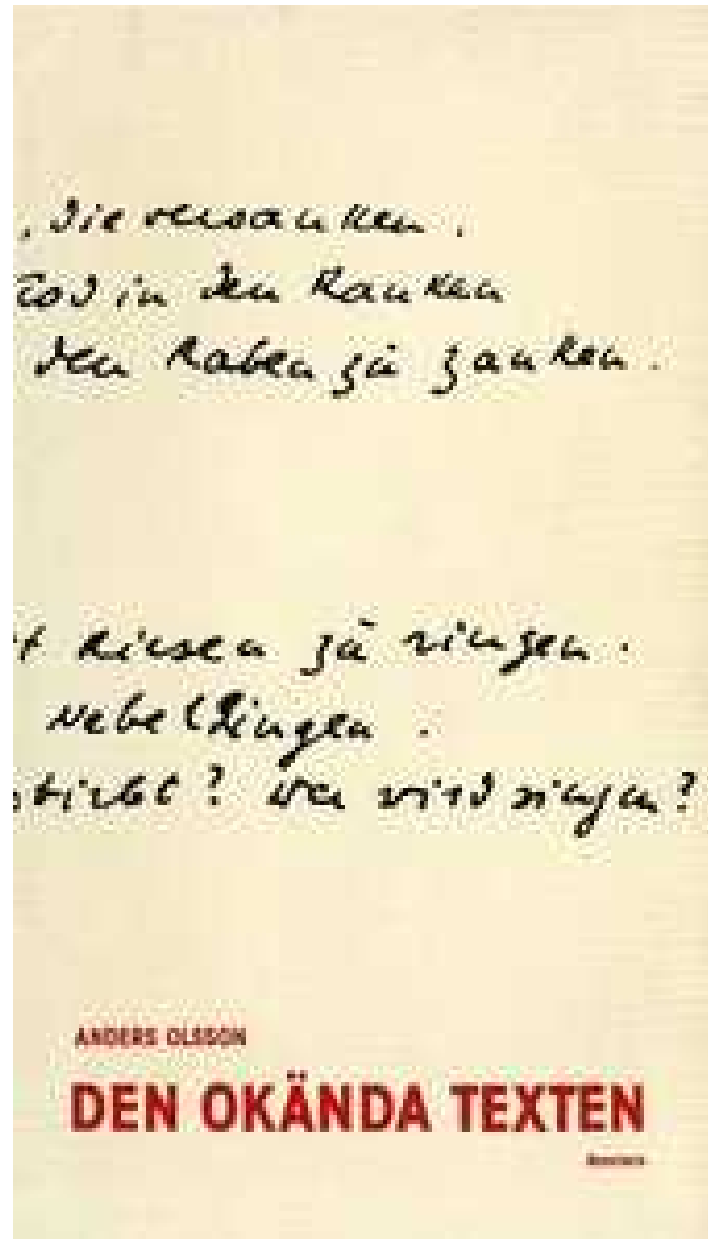 , die versanken.
Tod in den Ranken
den Raben zu zanken.
t Riesen zu ringen.
Nebeldingen.
stirbt? Wer wird singen?
ANDERS OLSSON
DEN OKÄNDA TEXTEN